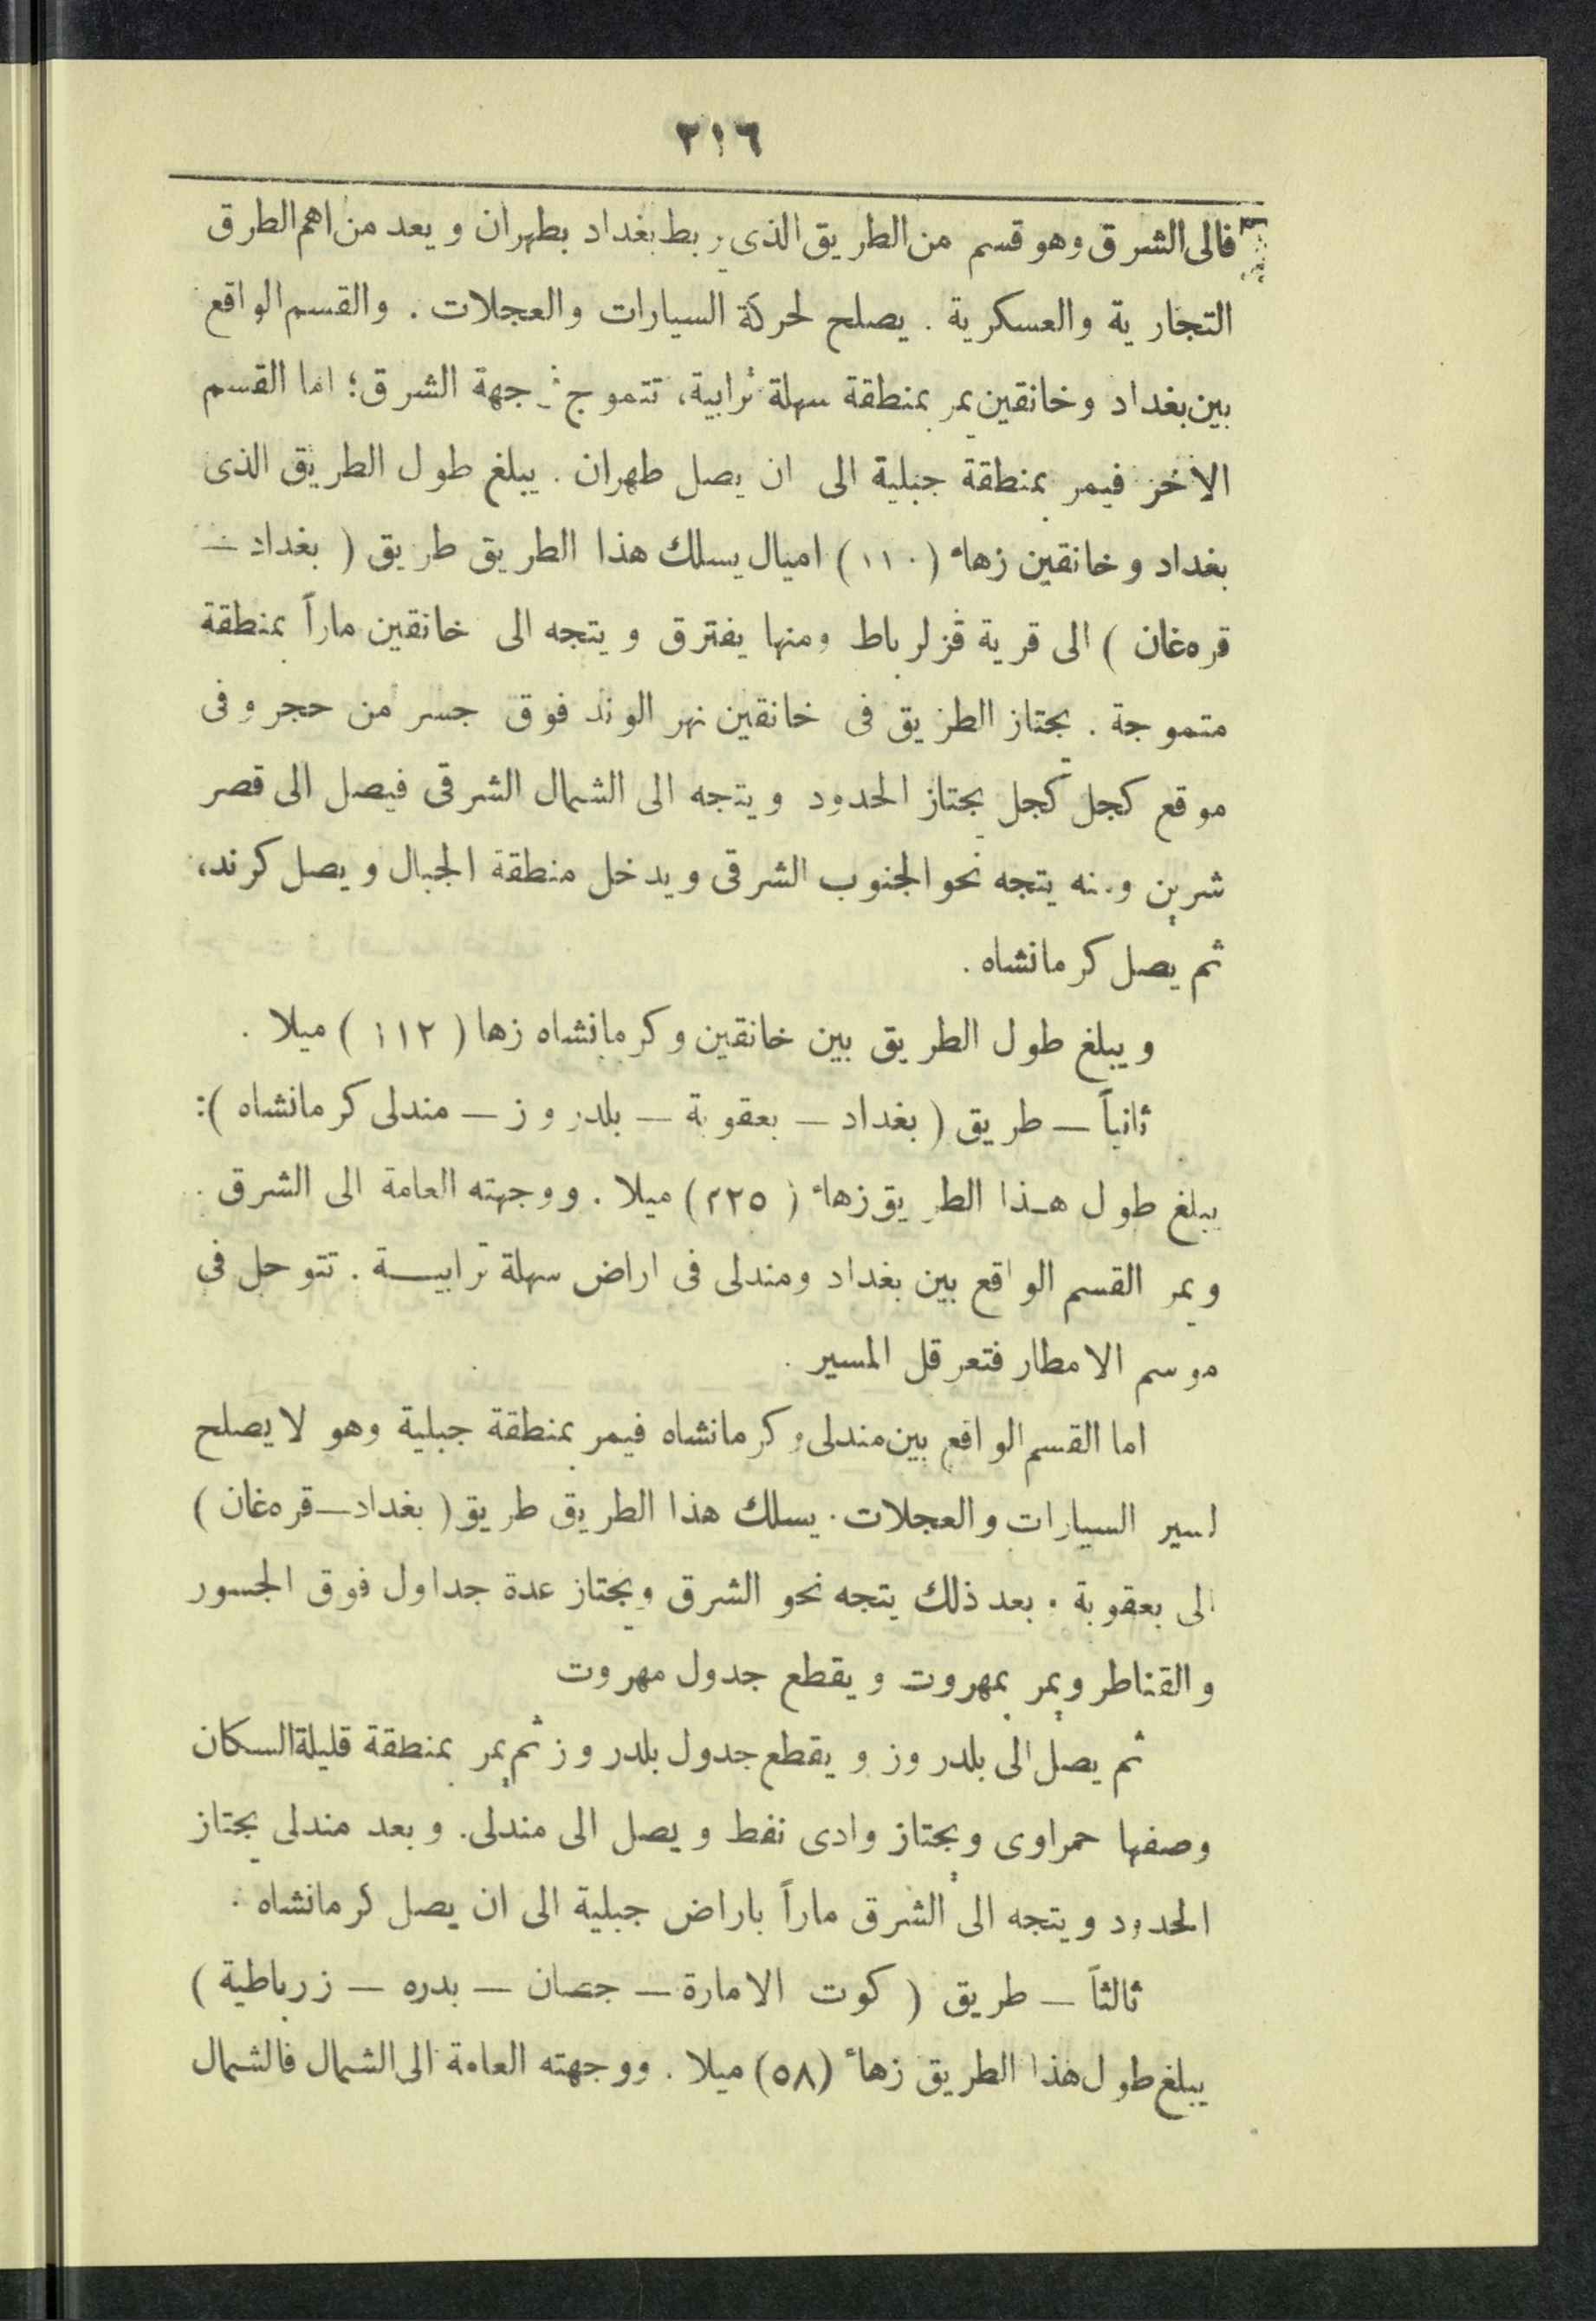 ٢١٦
فالى الشرق وهو قسم من الطريق الذى يربط بغداد بطهران ويعد من اهم الطرق
التجارية والعسكرية . يصلح لحركة السيارات والعجلات . والقسم الواقع
بين بغداد وخانقين يمر بمنطقة سهلة ترابية، تتموج جهة الشرق؛ اما القسم
الاخر فيمر بمنطقة جبلية الى ان يصل طهران . يبلغ طول الطريق الذى
بغداد وخانقين زهاء (١١٠) اميال يسلك هذا الطريق طريق ( بغداد —
قره‌غان ) الى قرية قزلرباط ومنها يفترق ويتجه الى خانقين ماراً بمنطقة
متموجة . يجتاز الطريق فى خانقين نهر الوند فوق جسر من حجر وفى
موقع كجل كجل يجتاز الحدود ويتجه الى الشمال الشرقى فيصل الى قصر
شرين ومنه يتجه نحو الجنوب الشرقى ويدخل منطقة الجبال ويصل كرند،
ثم يصل كرمانشاه .
ويبلغ طول الطريق بين خانقين وكرمانشاه زها ( ١١٢ ) ميلا .
ثانياً — طريق ( بغداد — بعقوبة — بلدروز — مندلى كرمانشاه ):
يبلغ طول هذا الطريق زهاء ( ٢٢٥ ) ميلا . ووجهته العامة الى الشرق .
ويمر القسم الواقع بين بغداد ومندلى فى اراض سهلة ترابية . تتوحل فى
موسم الامطار فتعرقل المسير .
اما القسم الواقع بين مندلى وكرمانشاه فيمر بمنطقة جبلية وهو لا يصلح
لسير السيارات والعجلات . يسلك هذا الطريق طريق ( بغداد — قره‌غان )
الى بعقوبة . بعد ذلك يتجه نحو الشرق ويجتاز عدة جداول فوق الجسور
والقناطر ويمر بمهروت ويقطع جدول مهروت
ثم يصل الى بلدروز ويقطع جدول بلدروز ثم يمر بمنطقة قليلة السكان
وصفها حمراوى ويجتاز وادى نفط ويصل الى مندلى. وبعد مندلى يجتاز
الحدود ويتجه الى الشرق ماراً باراض جبلية الى ان يصل كرمانشاه .
ثالثاً — طريق ( كوت الامارة — جصان — بدره — زرباطية )
يبلغ طول هذا الطريق زهاء (٥٨) ميلا . ووجهته العامة الى الشمال فالشمال